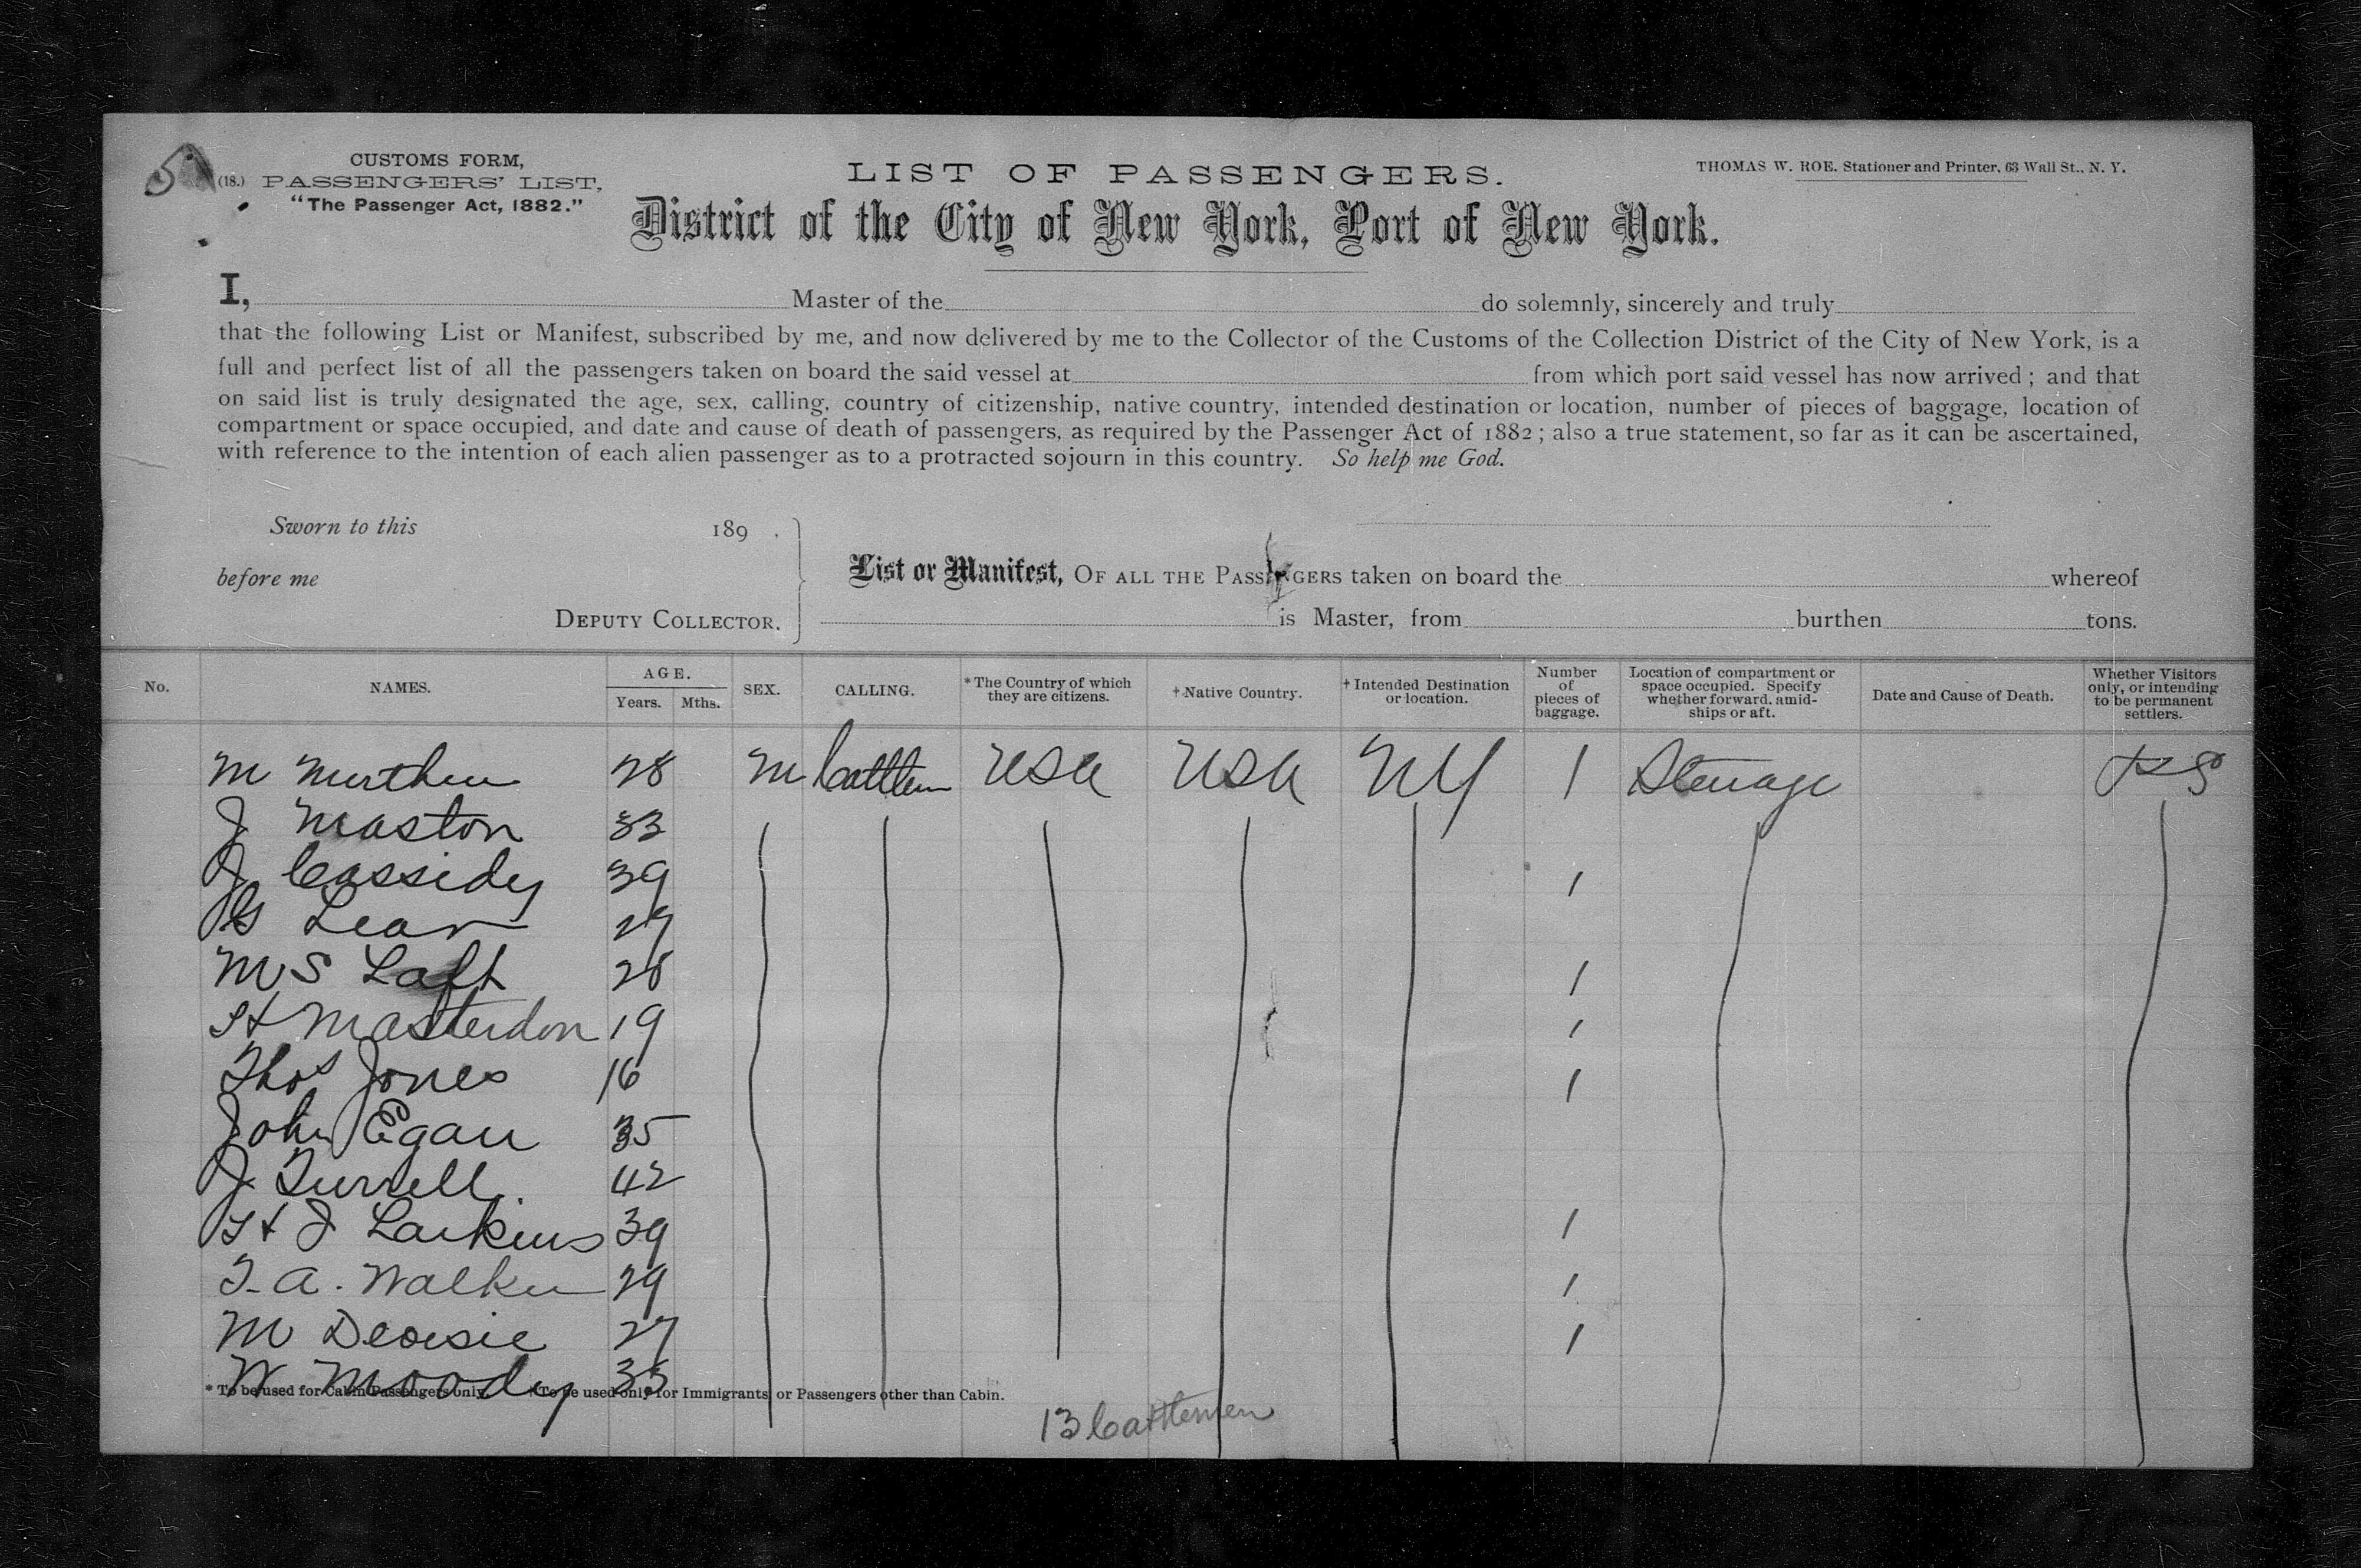 5
CUSTOMS FORM,
(18.) PASSENGERS' LIST,
"The Passenger Act, 1882."
LIST OF PASSENGERS.
THOMAS W. ROE. Stationer and Printer, 63 Wall St., N. Y.
District of the City of New York, Port of New York.
I, Master of the do solemnly, sincerely and truly
that the following List or Manifest, subscribed by me, and now delivered by me to the Collector of the Customs of the Collection District of the City of New York, is a
full and perfect list of all the passengers taken on board the said vessel at from which port said vessel has now arrived; and that
on said list is truly designated the age, sex, calling, country of citizenship, native country, intended destination or location, number of pieces of baggage, location of
compartment or space occupied, and date and cause of death of passengers, as required by the Passenger Act of 1882; also a true statement, so far as it can be ascertained,
with reference to the intention of each alien passenger as to a protracted sojourn in this country. So help me God.
Sworn to this 189 .
before me
DEPUTY COLLECTOR.
List or Manifest, OF ALL THE PASSENGERS taken on board the whereof
is Master, from burthen tons.
No. NAMES. AGE. Years. Mths. SEX. CALLING. * The Country of which they are citizens. † Native Country. † Intended Destination or location. Number of pieces of baggage. Location of compartment or space occupied. Specify whether forward, amidships or aft. Date and Cause of Death. Whether Visitors only, or intending to be permanent settlers.
M 28 M USA USA NY 1 Steerage
J Maston 33
J Cassidy 39 1
Lean 29
M S Laft 28 1
H Masterdon 19 1
Thos Jones 16 1
John Egan 35
J. Turrell. 42
H J Larkins 39 1
T. A. Walker 29 1
M 27 1
W Moody 33
* To be used for Cabin Passengers only. † To be used only for Immigrants or Passengers other than Cabin.
13 Cattlemen